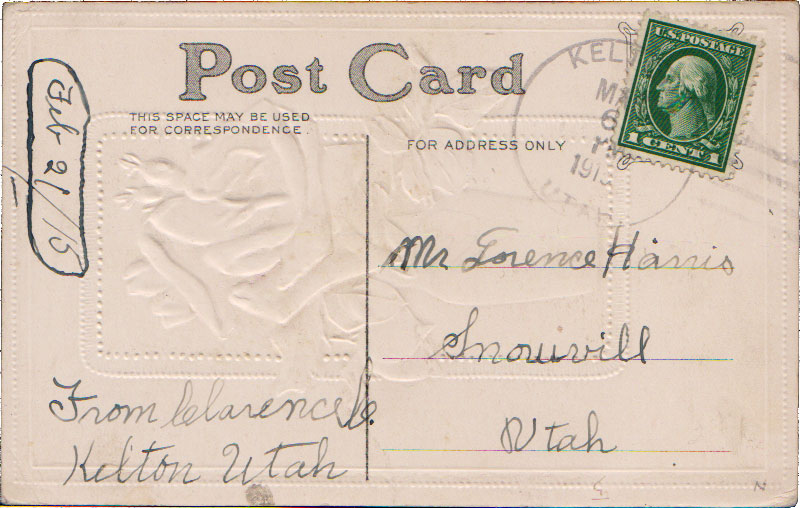 Post Card
THIS SPACE MAY BE USED
FOR CORRESPONDENCE.
FOR ADDRESS ONLY
U.S. POSTAGE
1 CENT 1
UTAH
Feb 21/15
Mr Lorence Harris
Snowvill
Utah
From Clarence C.
Kelton Utah